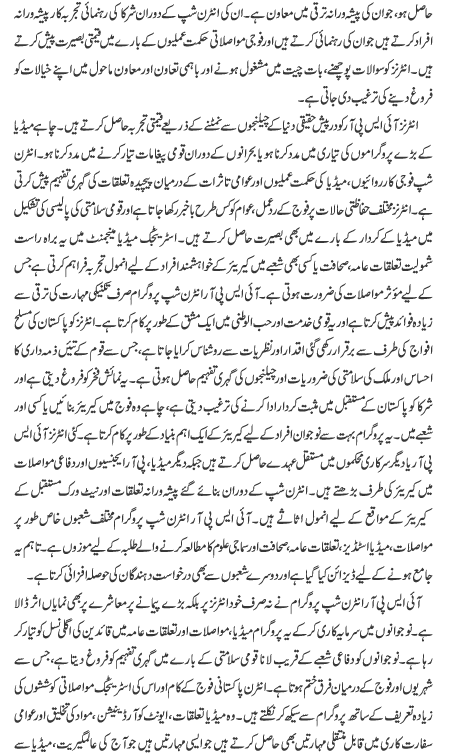 حاصل ہو، جو ان کی پیشہ ورانہ ترقی میں معاون ہے۔ ان کی انٹرن شپ کے دوران شرکا کی رہنمائی تجربہ کار پیشہ ورانہ
افراد کرتے ہیں جو ان کی رہنمائی کرتے ہیں اور فوجی مواصلاتی حکمت عملیوں کے بارے میں قیمتی بصیرت پیش کرتے
ہیں۔ انٹرنز کو سوالات پوچھنے، بات چیت میں مشغول ہونے اور باہمی تعاون اور معاون ماحول میں اپنے خیالات کو
فروغ دینے کی ترغیب دی جاتی ہے۔
انٹرنز آئی ایس پی آر کو درپیش حقیقی دنیا کے چیلنجوں سے نمٹنے کے ذریعے قیمتی تجربہ حاصل کرتے ہیں۔ چاہے میڈیا
کے بڑے پروگراموں کی تیاری میں مدد کرنا ہو یا بحرانوں کے دوران قومی پیغامات تیار کرنے میں مدد کرنا ہو۔ انٹرن
شپ فوجی کارروائیوں، میڈیا کی حکمت عملیوں اور عوامی تاثرات کے درمیان پیچیدہ تعلقات کی گہری تفہیم پیش کرتی
ہے۔ انٹرنز مختلف حفاظتی حالات پر فوج کے ردعمل، عوام کو کس طرح باخبر رکھا جاتا ہے اور قومی سلامتی کی پالیسی کی تشکیل
میں میڈیا کے کردار کے بارے میں بھی بصیرت حاصل کرتے ہیں۔ اسٹریٹجک میڈیا مینجمنٹ میں یہ براہ راست
شمولیت تعلقات عامہ، صحافت یا کسی بھی شعبے میں کیریئر کے خواہشمند افراد کے لیے انمول تجربہ فراہم کرتی ہے جس
کے لیے مؤثر مواصلات کی ضرورت ہوتی ہے۔ آئی ایس پی آر انٹرن شپ پروگرام صرف تکنیکی مہارت کی ترقی سے
زیادہ فوائد پیش کرتا ہے اور یہ قومی خدمت اور حب الوطنی میں ایک مشق کے طور پر کام کرتا ہے۔ انٹرنز کو پاکستان کی مسلح
افواج کی طرف سے برقرار رکھی گئی اقدار اور نظریات سے روشناس کرایا جاتا ہے، جس سے قوم کے تئیں ذمہ داری کا
احساس اور ملک کی سلامتی کی ضروریات اور چیلنجوں کی گہری تفہیم حاصل ہوتی ہے۔ یہ نمائش فخر کو فروغ دیتی ہے اور
شرکا کو پاکستان کے مستقبل میں مثبت کردار ادا کرنے کی ترغیب دیتی ہے، چاہے وہ فوج میں کیریئر بنائیں یا کسی اور
شعبے میں۔ یہ پروگرام بہت سے نوجوان افراد کے لیے کیریئر کے لیے ایک اہم بنیاد کے طور پر کام کرتا ہے۔ کئی انٹرنز آئی ایس
پی آر یا دیگر سرکاری محکموں میں مستقل عہدے حاصل کرتے ہیں جبکہ دیگر میڈیا، پی آر ایجنسیوں اور دفاعی مواصلات
میں کیریئر کی طرف بڑھتے ہیں۔ انٹرن شپ کے دوران بنائے گئے پیشہ ورانہ تعلقات اور نیٹ ورک مستقبل کے
کیریئر کے مواقع کے لیے انمول اثاثے ہیں۔ آئی ایس پی آر انٹرن شپ پروگرام مختلف شعبوں خاص طور پر
مواصلات، میڈیا اسٹڈیز، تعلقات عامہ، صحافت اور سماجی علوم کا مطالعہ کرنے والے طلبہ کے لیے موزوں ہے۔ تاہم یہ
جامع ہونے کے لیے ڈیزائن کیا گیا ہے اور دوسرے شعبوں سے بھی درخواست دہندگان کی حوصلہ افزائی کرتا ہے۔
آئی ایس پی آر انٹرن شپ پروگرام نے نہ صرف خود انٹرنز پر بلکہ بڑے پیمانے پر معاشرے پر بھی نمایاں اثر ڈالا
ہے۔ نوجوانوں میں سرمایہ کاری کر کے یہ پروگرام میڈیا، مواصلات اور تعلقات عامہ میں قائدین کی اگلی نسل کو تیار کر
رہا ہے۔ نوجوانوں کو دفاعی شعبے کے قریب لانا قومی سلامتی کے بارے میں گہری تفہیم کو فروغ دیتا ہے، جس سے
شہریوں اور فوج کے درمیان فرق ختم ہوتا ہے۔ انٹرن پاکستانی فوج کے کام اور اس کی اسٹریٹجک مواصلاتی کوششوں کی
زیادہ تعریف کے ساتھ پروگرام سے سیکھ کر نکلتے ہیں۔ وہ میڈیا تعلقات، ایونٹ کوآرڈینیشن، مواد کی تخلیق اور عوامی
سفارت کاری میں قابل منتقلی مہارتیں بھی حاصل کرتے ہیں جو ایسی مہارتیں ہیں جو آج کی عالمگیریت، میڈیا سے